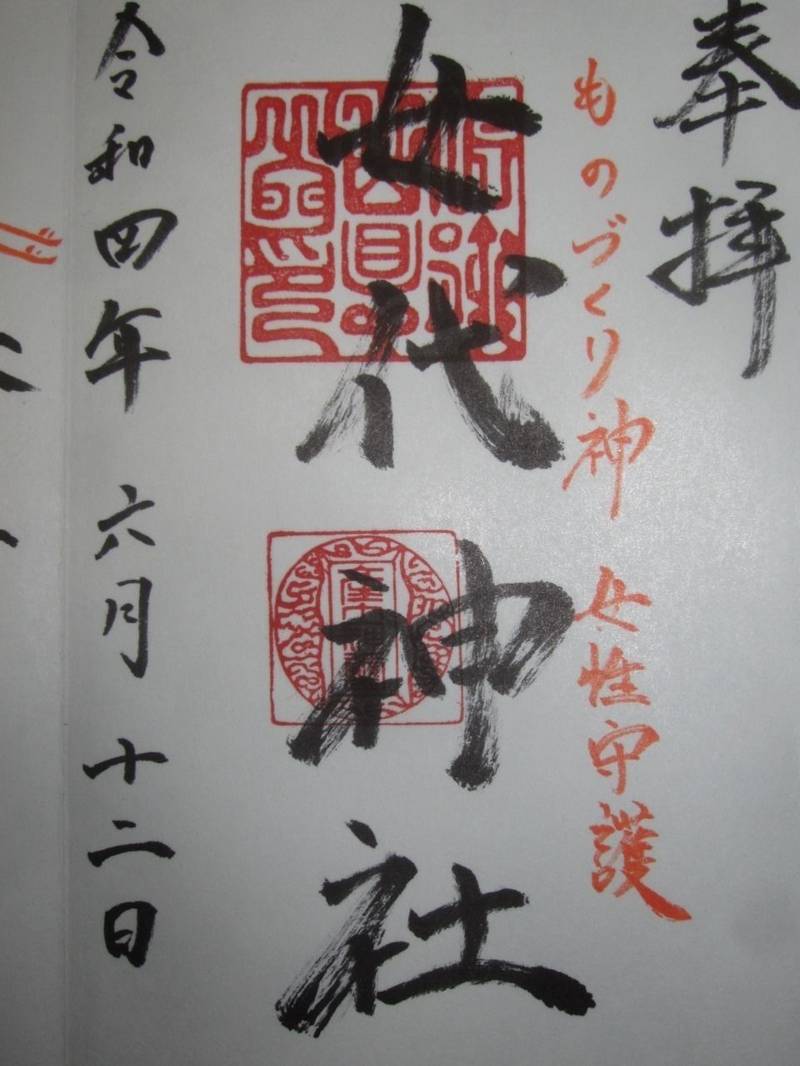 奉拝
ものづくり神 女性守護
女代神社
令和四年 六月 十二日